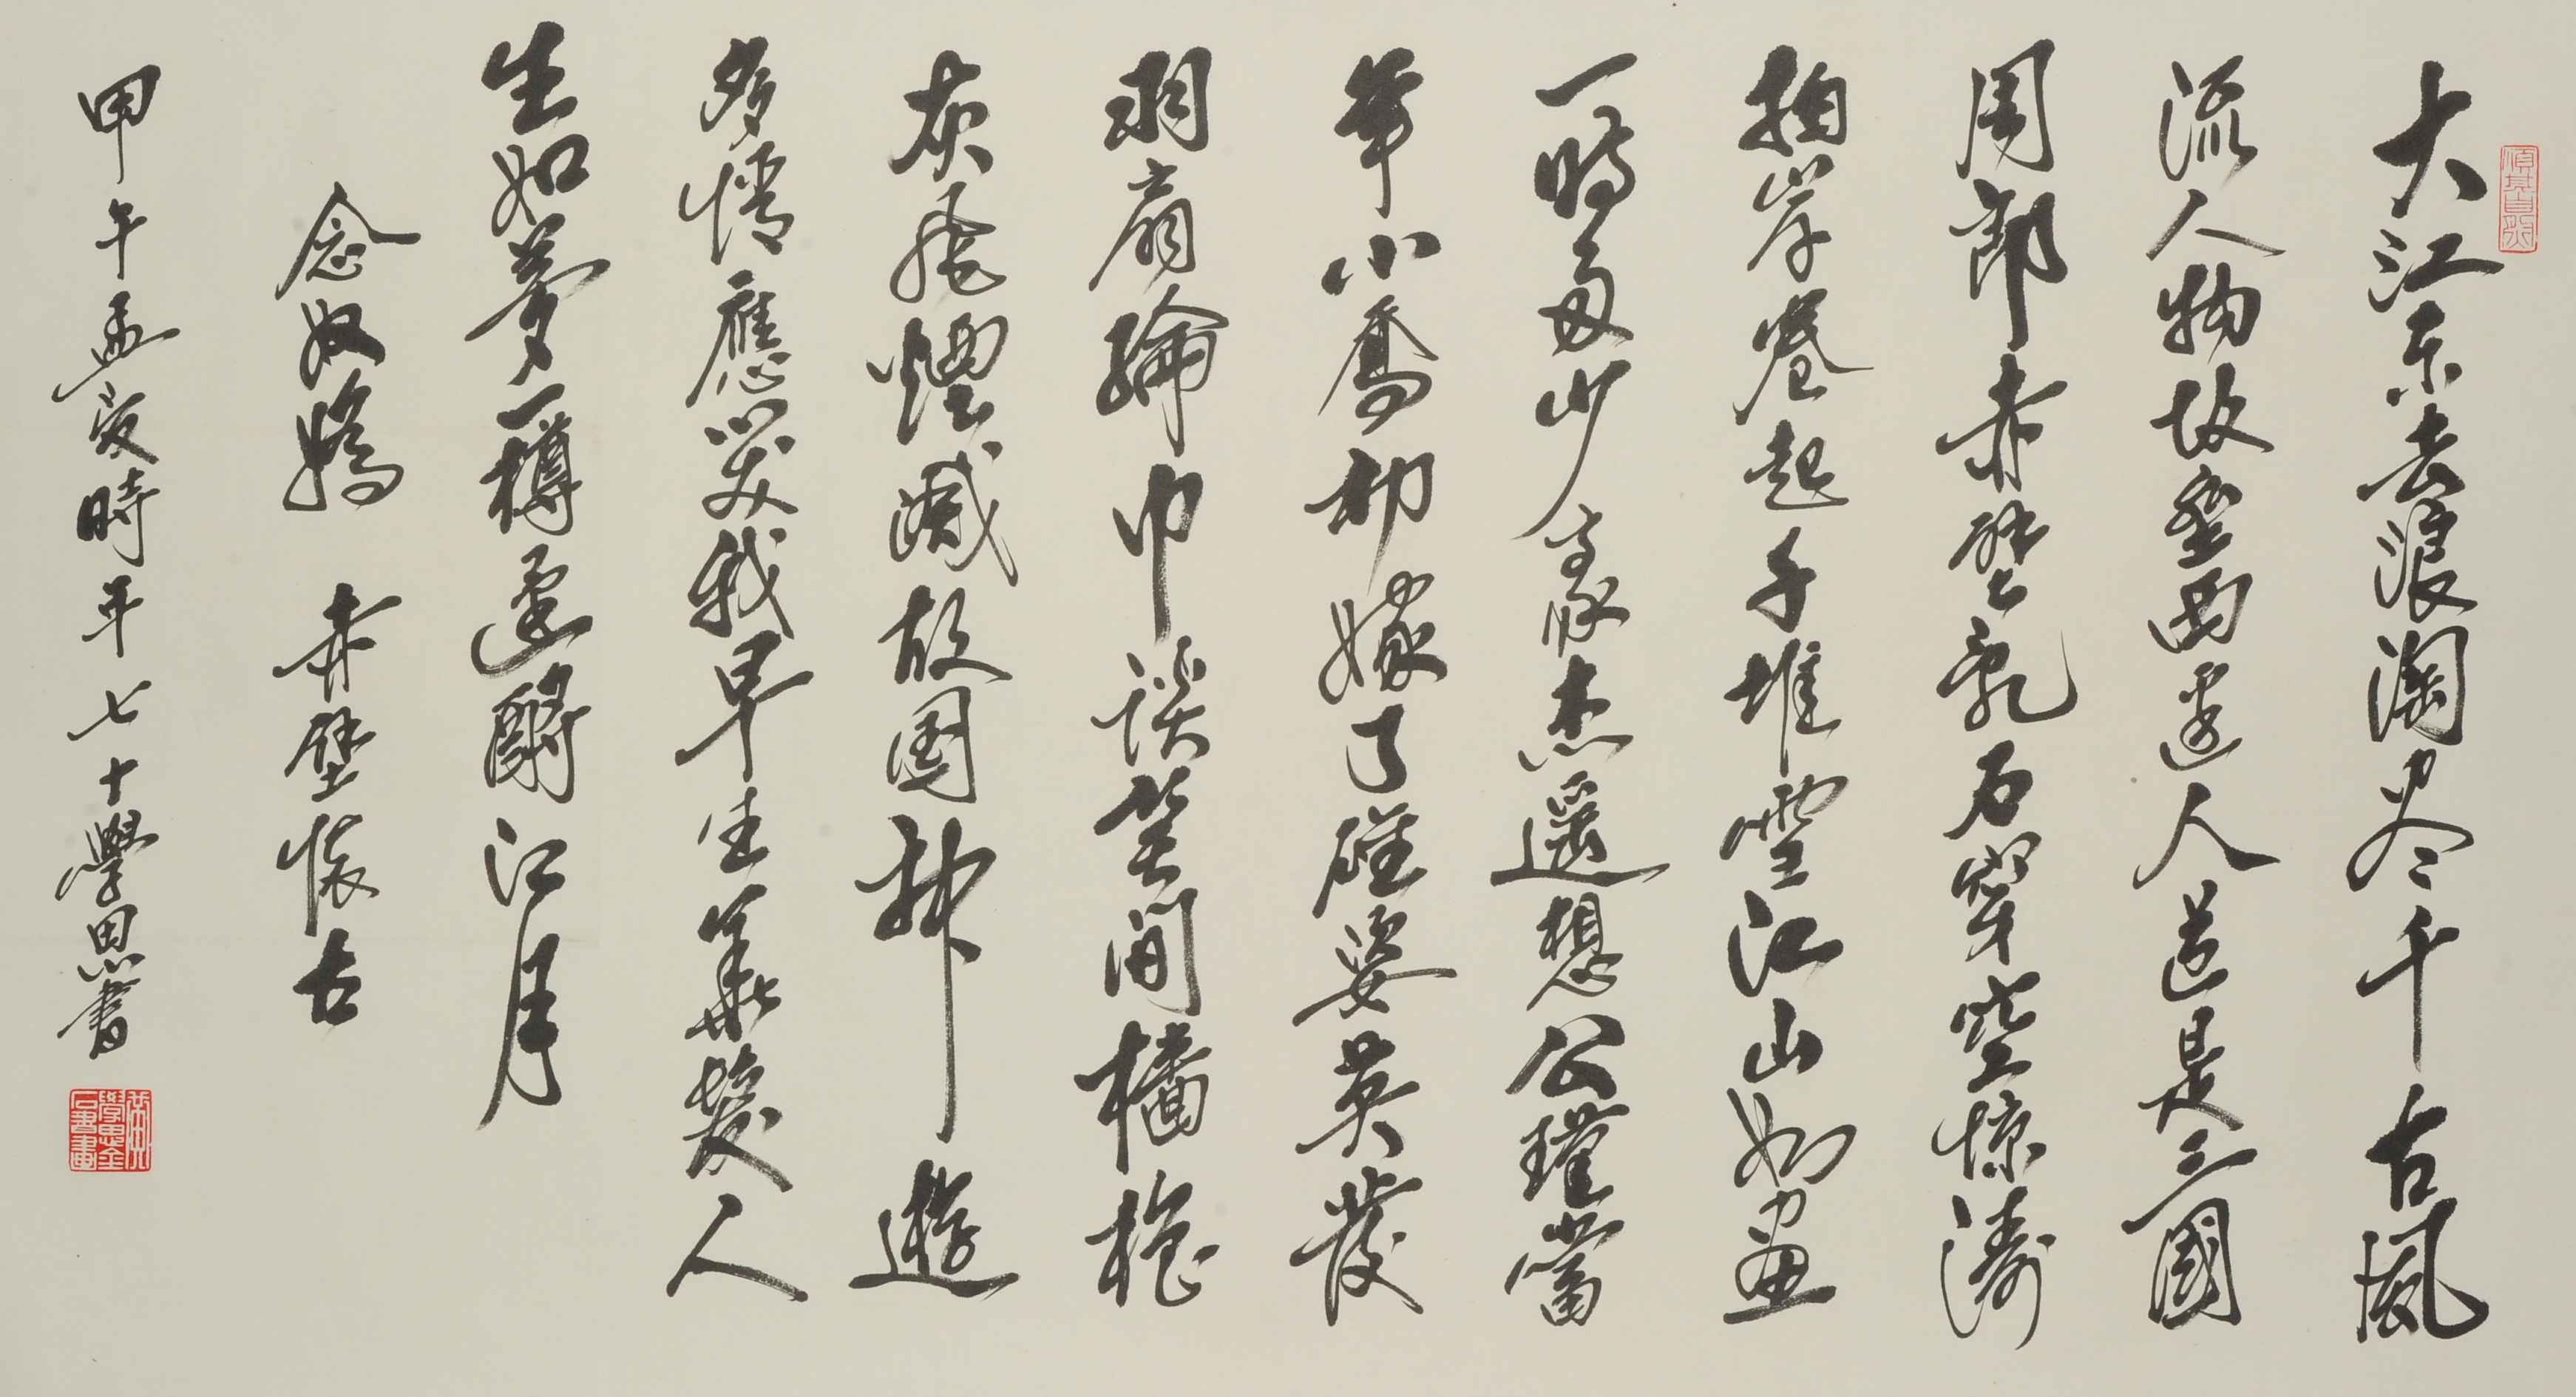 大江东去浪淘尽千古風
流人物故壘西邊人道是三國
周郎赤壁乱石穿空惊濤
拍岸卷起千堆雪江山如畫
一時多少豪杰遥想公瑾當
年小喬初嫁了雄姿英發
羽扇綸巾談笑间檣櫓
灰飛煙滅故国神遊
多情應笑我早生華髮人
生如夢一樽還酹江月
念奴嬌 赤壁懷古
甲午孟夏時年七十學思書